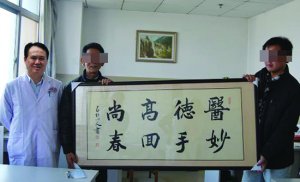 醫德高尚
妙手回春